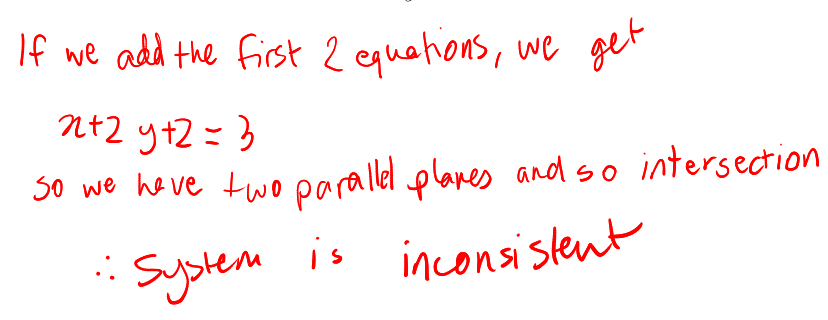 If we add the first 2 equations, we get
x+2y+z = 3
so we have two parallel planes and so intersection
∴ System is inconsistent